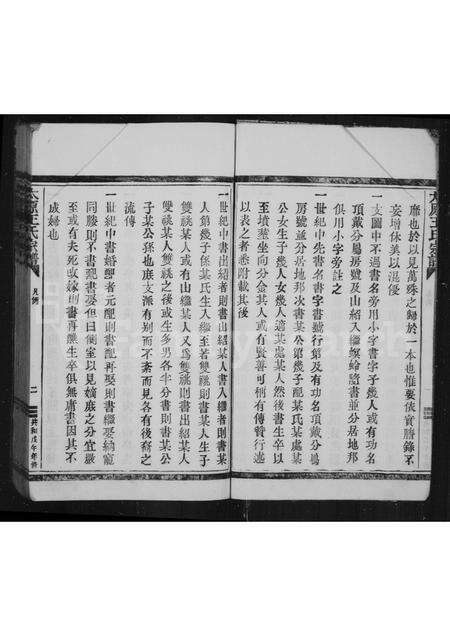 太原王氏宗譜
靡也於以見萬殊之歸於一本也惟要依實謄錄不
妄增休美以混優
一支圖中不過書名旁用小字書字子幾人或有功名
頂戴分屬房號及出紹入繼嫔給諮書並分居地邦
俱用小字旁註之
一世紀中先書名書字書號行第及有功名頂戴分屬
房號並分居地那次書某公第幾子配某氏某處某
公女生子幾人女幾人適某處某人然後書生卒以
至墳塋坐向分金其人或有賢善可稱有傳贊行述
以表之者悉附載其後
一世紀中書出紹者則書出紹某人書入繼者則書某
人第幾子係某氏生入繼至若雙祧則書某人生子
雙祧某人或有出繼某人又爲雙祧則書出紹某人
雙祧某人其雙祧之後或生多男各半分書則書某公
子某公孫也庶支派有别而不紊而見各有後裔之
流傳
一世紀中書婚娶者元配則書配再娶則書繼娶納寵
同媵則不書配書娶但曰側室以見嫡庶之分宜嚴
至或有夫死改嫁則書再醮生卒俱無庸書因其不
成婦也
太原王氏宗譜
凡例
二
共和戊午年修